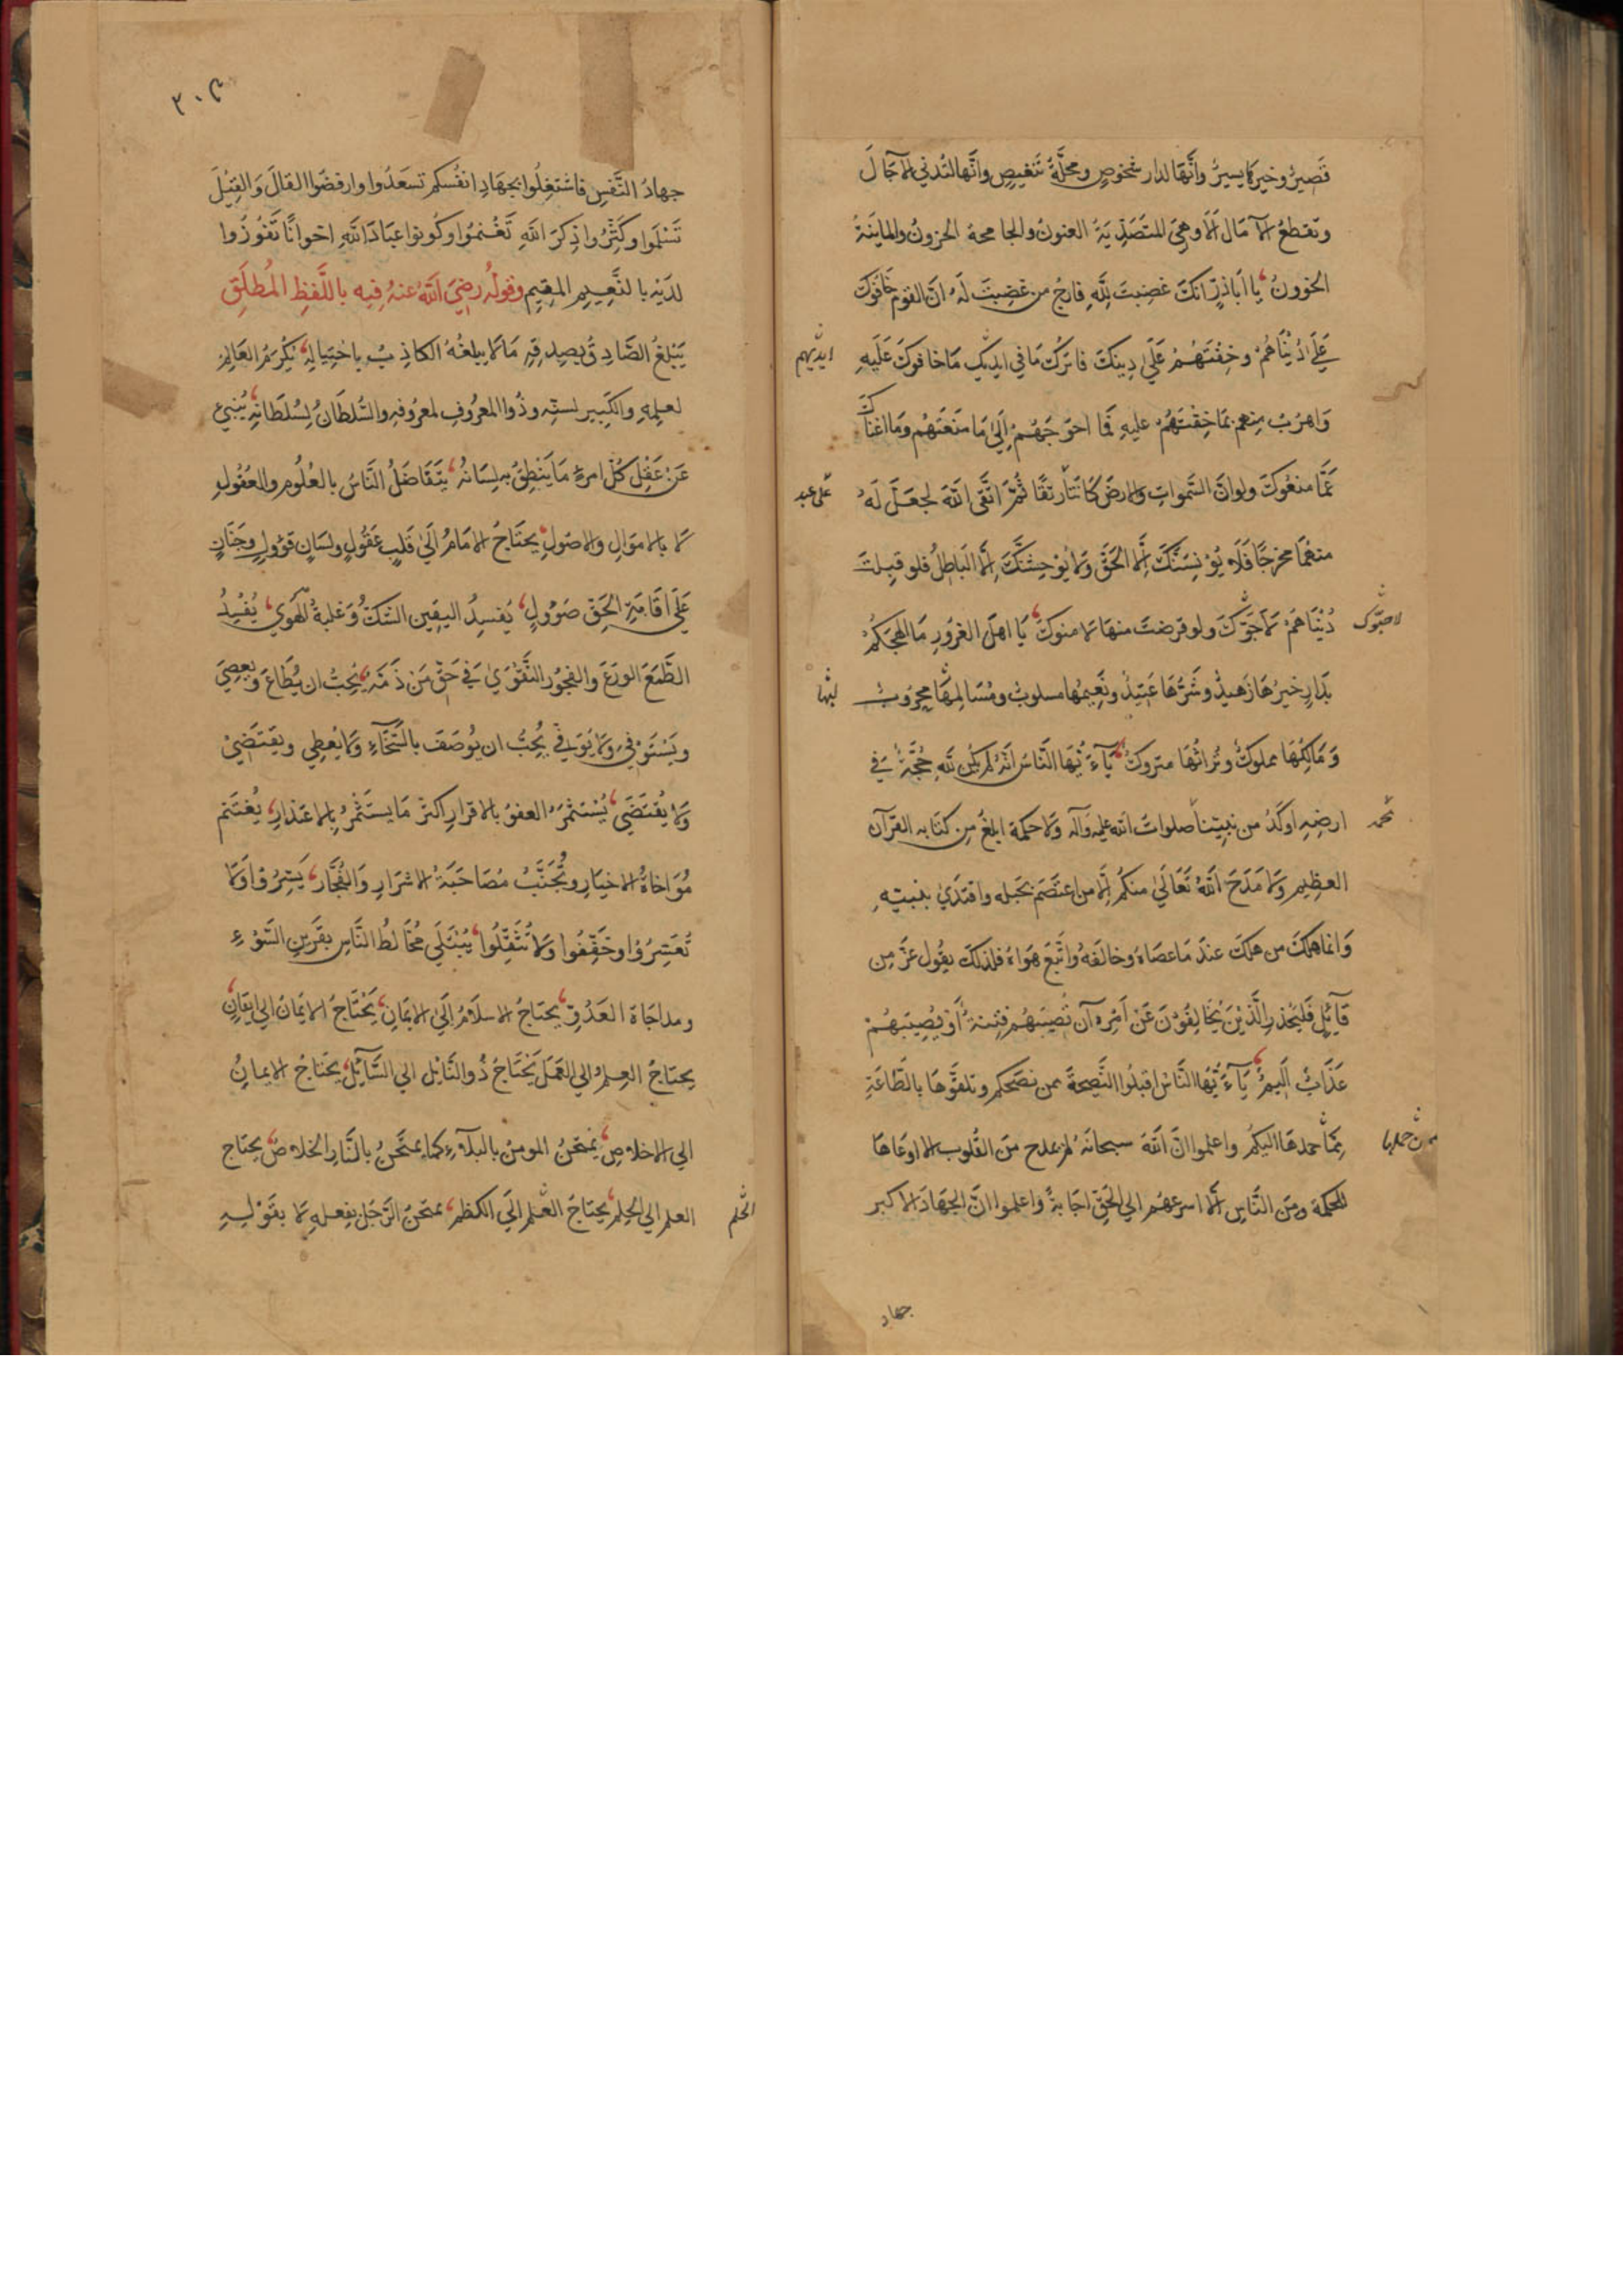 قَصيرٌ وخيرها يسيرٌ وأنّها لدار شخوصٍ ومحلّة تنغيصٍ وانّها لتدني الآجالَ
وتقطعُ الآمال ألا وهي المتصَدّيةُ العنونُ والجامحة الحزونُ والماينةُ
الخوون يا اباذرّ انكَ غضِبتَ للّهِ فارجُ من غضِبتَ لَه انّ القوم خافوكَ
عَلَي دُنْيَاهُمْ وخِفْتَهُمْ عَلَي دِينكَ فاترك مَا في ايديك مَا خافوكَ عَلَيهِ
ايديهم
وَاهرُبْ منهم بمَا خِفْتَهُمْ عليهِ فَما احوَجَهُمْ إلَىٰ مَا مَنَعَتَهُمْ وَمَا اغناكَ
عَمَّا منعُوكَ ولو انّ السّموات والارضَ كانتَا رتقًا ثُمّ اتَّقى اللّهَ لجعَلَ لَهُ
على عبد
منهُمَا مخرجًا فَلَا يُؤنِسَنَّكَ إلّا الحَقّ ولا يُوْحِشَنَّكَ إلّا البَاطِلُ فلو قبِلتَ
دُنْيَاهمْ لاَحَبّوكَ ولو قرضتَ منهَا لاَمنوكَ يَا اهلَ الغرُورِ مَا الهجَكُمْ
لاحبّوك
بدَارٍ خيرُهَا زَهيدٌ وشَرُّهَا عَتيدٌ ونَعِيمُهَا مسلوبٌ ومُسَالِمهَا محروبٌ
وَمَالِكُهَا مملوكٌ وتُراثُهَا متروكٌ يَآءَيُّهَا النَّاسُ انّهُ لم يكن للّهِ حُجَّةٌ في
ارضِهِ اَوكَدُ من نبيّنا صلوات اللّه عليه وآله ولا حكمة ابلغُ من كتابه القرآن
محمد
العظِيم ولا مَدَحَ اللّهُ تَعَالَىٰ منكُم إلّا من اعتَصَمَ بحَبله واقتدَي بنبيّهِ
وَانما هلكَ من هلكَ عندَ مَا عصَاهُ وخالفَهُ واتّبَعَ هَوَاهُ فلذلكَ يقُول عزَّ مِن
قَآئِلٍ فَليَحْذرِ الَّذيْنَ يُخَالِفُوْنَ عَنْ اَمْرِه آن تُصِيبَهُم فِتْنَةٌ أَوْ يُصِيْبَهُمْ
عَذَابٌ ألِيمٌ يَآءَيُّهَا النَّاسُ اقبلُوا النَّصِيحَةَ ممن نصَحكم وتلقَّوهَا بالطّاعَةِ
ممّن حمدها اليكُم واعلموا انّ اللّهَ سبحانَهُ لم يمدح منَ القُلُوب الا اوعَاهَا
للحكمة ومنَ النَّاسِ إلّا اسرعهُم الي الحَقّ اجَابةً وَاعلموا انَّ الجهَادَ الاكبر
جهاد
٣٠٤
جهادُ النَّفسِ فاشتَغِلُوا بجهَادِ انفُسكم تسعَدُوا وارفضُوا القالَ وَالقِيْلَ
تَسْلَمُوا وكَثِّرُوا ذِكرَ اللّهِ تَغْنَمُوا وكونوا عبَادَ اللّهِ اخوانًا تَفُوْزُوا
لدَيْه بالنَّعِيمِ المقِيمِ وقولُه رضِيَ اللّهُ عنهُ فِيه باللّفظِ المُطلَقِ
يَبْلغُ الصَّادِقُ بصِدقِه مَا لا يبلغُهُ الكاذِبُ باحْتِيالِهِ يُكْرَمُ العَالِمُ
لعِلمِهِ والكَبِير لسنّه وذُوا المعرُوفِ لمعرُوفِه والسُّلطَانُ لِسُلطَانِهِ يُنبئُ
عَنْ عَقْلِ كُلّ امرءٍ مَا يَنْطِقُ به لِسَانُهُ يَتَفَاضَلُ النَّاسُ بالعُلُومِ والعُقُولِ
لا بالاموَالِ والاصُولِ يحتَاجُ الامَامُ إلَىٰ قَلبٍ عَقُولٍ ولسَانٍ قَؤُولٍ وجَنَانٍ
عَلَى اقَامَةِ الحَقّ صَؤُولٍ يُفسِدُ اليقين الشّكُّ وَغلبةُ الهَوي يُفسِدُ
الطَّمَعَ الورَعَ والفجوُر التَّقوَيٰ في حَقّ مَن ذَمّهُ يُحِبُّ ان يُطَاعَ ويعصِيَ
ويَسْتَوْفيَ ولا يُوَفي يُحِبُّ ان يُوصَفَ بالسَّخَاءِ ولا يُعطِي ويقتَضِيْ
ولا يُقتَضَي يُسْتَثْمَرُ العفوُ بالاقرارِ اكثرَ مَا يستَثْمرُ بالاعتذارِ يُغتَنم
مُؤَاخاةُ الاخيَارِ ويُجْتَنَبُ مُصَاحَبَةُ الاشرَارِ وَالفُجَّارِ يَسِّرُوْا وَلا
تُعَسِّرُوْا وخَفِّفُوا وَلا تُثَقِّلُوا يُبْتَلَي مُخَالطُ النَّاسِ بقَرينِ السُّوْءِ
ومداجَاة العَدُوّ يحتَاجُ الاسلَامُ إلَىٰ الايمَانِ يَحْتَاجُ الايمَانُ الي ايقَانٍ
يحتَاجُ العِلمُ الي العَمَلِ يَحْتَاجُ ذُو النَّايْلِ الي السَّآئِلِ يحتَاجُ الايمانُ
الي الاخلاصِ يُمْتحَنُ المومنُ بالبَلآءِ كمَا يمتحَنُ بالنَّارِ الخلاصُ يحتَاج
العلم الي الحِلم يحتَاجَ العلم إلَي الكظم يمتحَنُ الرَّجُل بفِعلهِ لا بقَوْلِهِ
الحلم